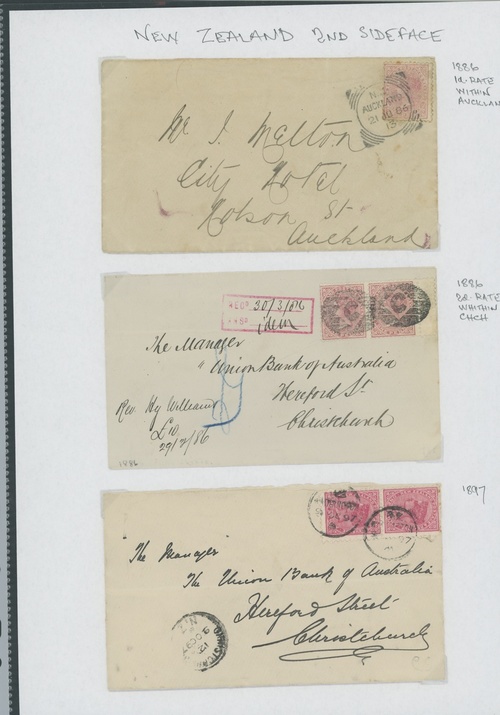 NEW ZEALAND 2ND SIDEFACE
1886
1d. RATE
WITHIN
AUCKLAN
N.Z
AUCKLAND
21 JU 86
13
Mr J. Melton
City Hotel
Hobson St
Auckland
1886
2d. RATE
WHITHIN
CHCH
30/3/86
The Manager
" Union Bank of Australia
Hereford St
Christchurch
Rev. Hy Williams
£10
29/3/86
1886
1897
"The Manager"
The Union Bank of Australia
Hereford Street
Christchurch
N.Z